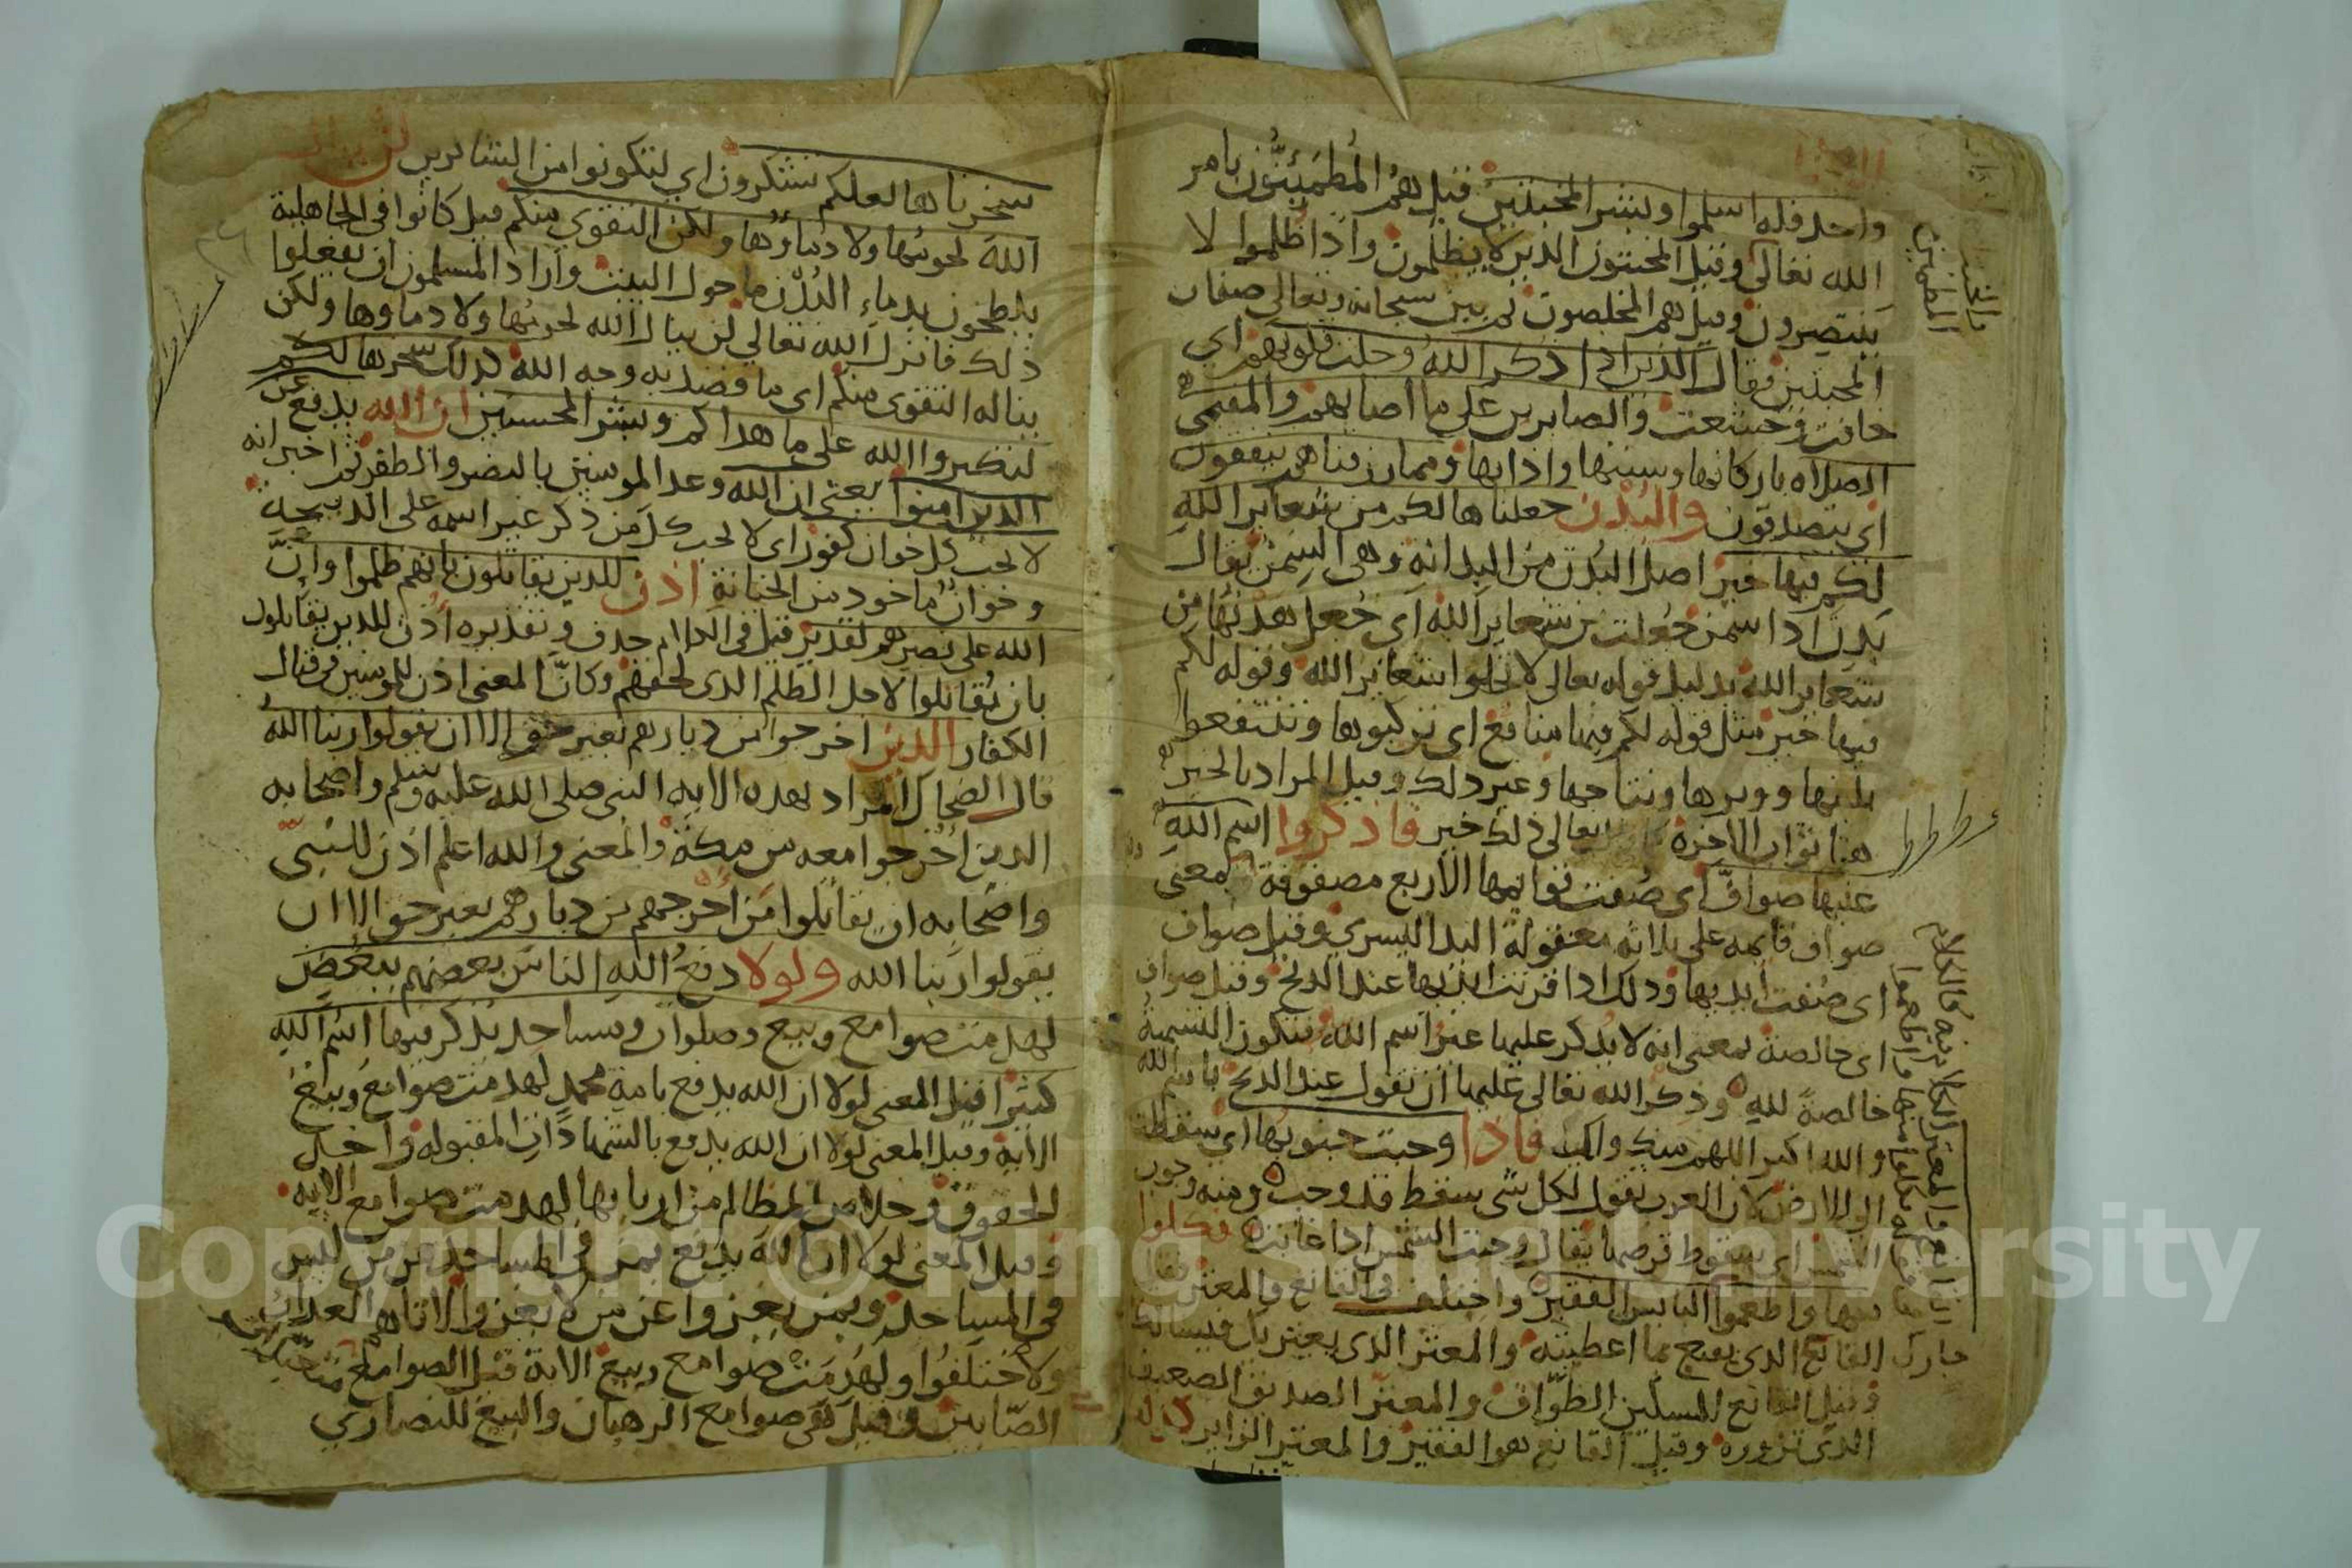 واحد فله اسلموا وبشر المخبتين قيل هم المُطمَئِنُّون بامر
الله تعالى وقيل المخبتون الذين لا يظلمون واذا ظُلموا لا
ينتصرون وقيل هم المخلصون ثم بين سبحانه وتعالى صفات
المخبتين فقال الذين اذا ذكر الله وجلت قلوبهم اي
خافت وخشعت والصابرين على ما اصابهم والمقيمي
الصلاه باركانها وسننها واذابها ومما رزقناهم ينفقون
اي يتصدقون والبُدْن جعلناها لكم من شعاير الله
لكم فيها خير اصل البُدْن من البدانه وهي السِمَن يقال
بَدِن اذا سمن جُعلت من شعاير الله اي جُعل هَدْيُها من
شعاير الله بدليل قوله تعالى لا تحلوا شعاير الله وقوله لكم
فيها خير مثل قوله لكم فيها منافع اي تركبوها وتنتفعوا
بلبنها ووبرها ونتاجها وغير ذلك وقيل المراد بالخير
هنا ثواب الاخرة تعالى ذلك خير فاذكروا اسم الله
عليها صوافَّ اي صُفت قوايمها الاربع مصفوفة بمعنى
صواف قايمه على ثلاثه معقولة اليد اليسرى وقيل صواف
اي صُفت ايديها وذلك اذا قرنت ايديها عند الذبح وقيل صواف
اي خالصة بمعنى انه لا يُذكر عليها غير اسم الله فتكون التسمية
خالصةً لله وذكر الله تعالى عليها ان تقول عند الذبح باسم الله
والله اكبر اللهم منك واليك فاذا وجبت جنوبُها اي سقطت
الى الارض لان العرب تقول لكل شى سقط قد وجب ومنه وجوب
الشمس اي سقوط قرصها يقال وجبت الشمس اذا غابت فكلوا
منها واطعموا البايس الفقير واختلف في القانع والمعتر فقال
القانع الذي يقنع بما اعطيته والمعتر الذي يعتر بك فيسالك
وقيل القانع المسكين الطوّاف والمعتر الصديق الضعيف
الذى تزوره وقيل القانع هو الفقير والمعتر الزاير كذلك
سخرناها لعلكم تشكرون اي لتكونوا من الشاكرين لن ينال
الله لحومُها ولا دماوُها ولكن التقوى منكم قيل كانوا في الجاهلية
يلطخون بدماءِ البُدْن ما حول البيت واراد المسلمون ان يفعلوا
ذلك فانزل الله تعالى لن ينال الله لحومُها ولا دماوها ولكن
يناله التقوى منكم اي ما قصد به وجه الله كذلك سخرها لكم
لتكبروا الله على ما هداكم وبشر المحسنين ان الله يدفع عن
الذين امنوا يعنى ان الله وعد المومنين بالنصر والظفر ثم اخبر انه
لا يحب كل خوان كفور اي لا يحب كل من ذكر غير اسمه على الذبيحة
وخوانٌ ماخوذ من الخيانة اذن للذين يقاتلون بانهم ظلموا وانَّ
الله على نصرهم لقدير قيل في الكلام حذف وتقديره أُذن للذين يقاتلون
بان يُقاتلوا لاجل الظلم الذى لحقهم وكانَّ المعنى اذن للمومنين في قتال
الكفار الذين اخرجوا من ديارهم بغير حق الا ان يقولوا ربنا اللهُ
قال الضحاك المراد بهذه الايه النبى صلى الله عليه وسلم واصحابه
الذين اُخرجوا معه من مكة والمعنى والله اعلم اذن للنبي
واصحابه ان يقاتلوا مَن اخرجهم من ديارهم بغير حق الا ان
يقولوا ربنا الله ولولا دفعُ الله الناس بعضهم ببعض
لهدمت صوامع وبيع وصلوات ومساجد يذكر فيها اسم الله
كثيرا قيل المعنى لولا ان الله يدفع بامة محمدٍ لهدمت صوامع وبيع
الاية وقيل المعنى لولا ان الله يدفع بالشهادات المقبوله واخذ
الحقوق وخلاص المظالم من اربابها لهدمت صوامع الايه
وقيل المعنى لولا ان الله يدفع بمن في المساجد عن من ليس
في المساجد وبمن يغزوا عن من لا يغزوا لاتاهم العذاب
ولاختلفُوا ولهُدمَتْ صوامع وبيع الاية قيل الصوامع متعبدات
الصّابين وقيل هي صوامع الرهبان والبيع للنصارى